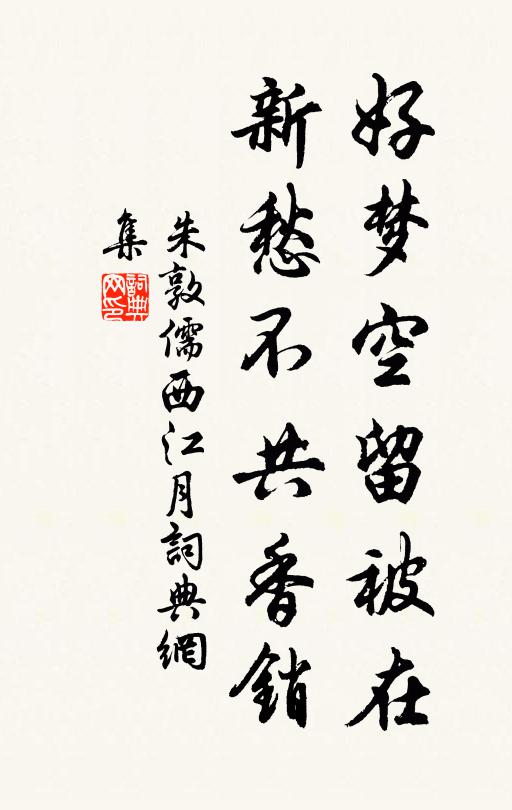 好梦空留被在
新愁不共香銷
朱敦儒西江月詞典網
集
詞典
网印